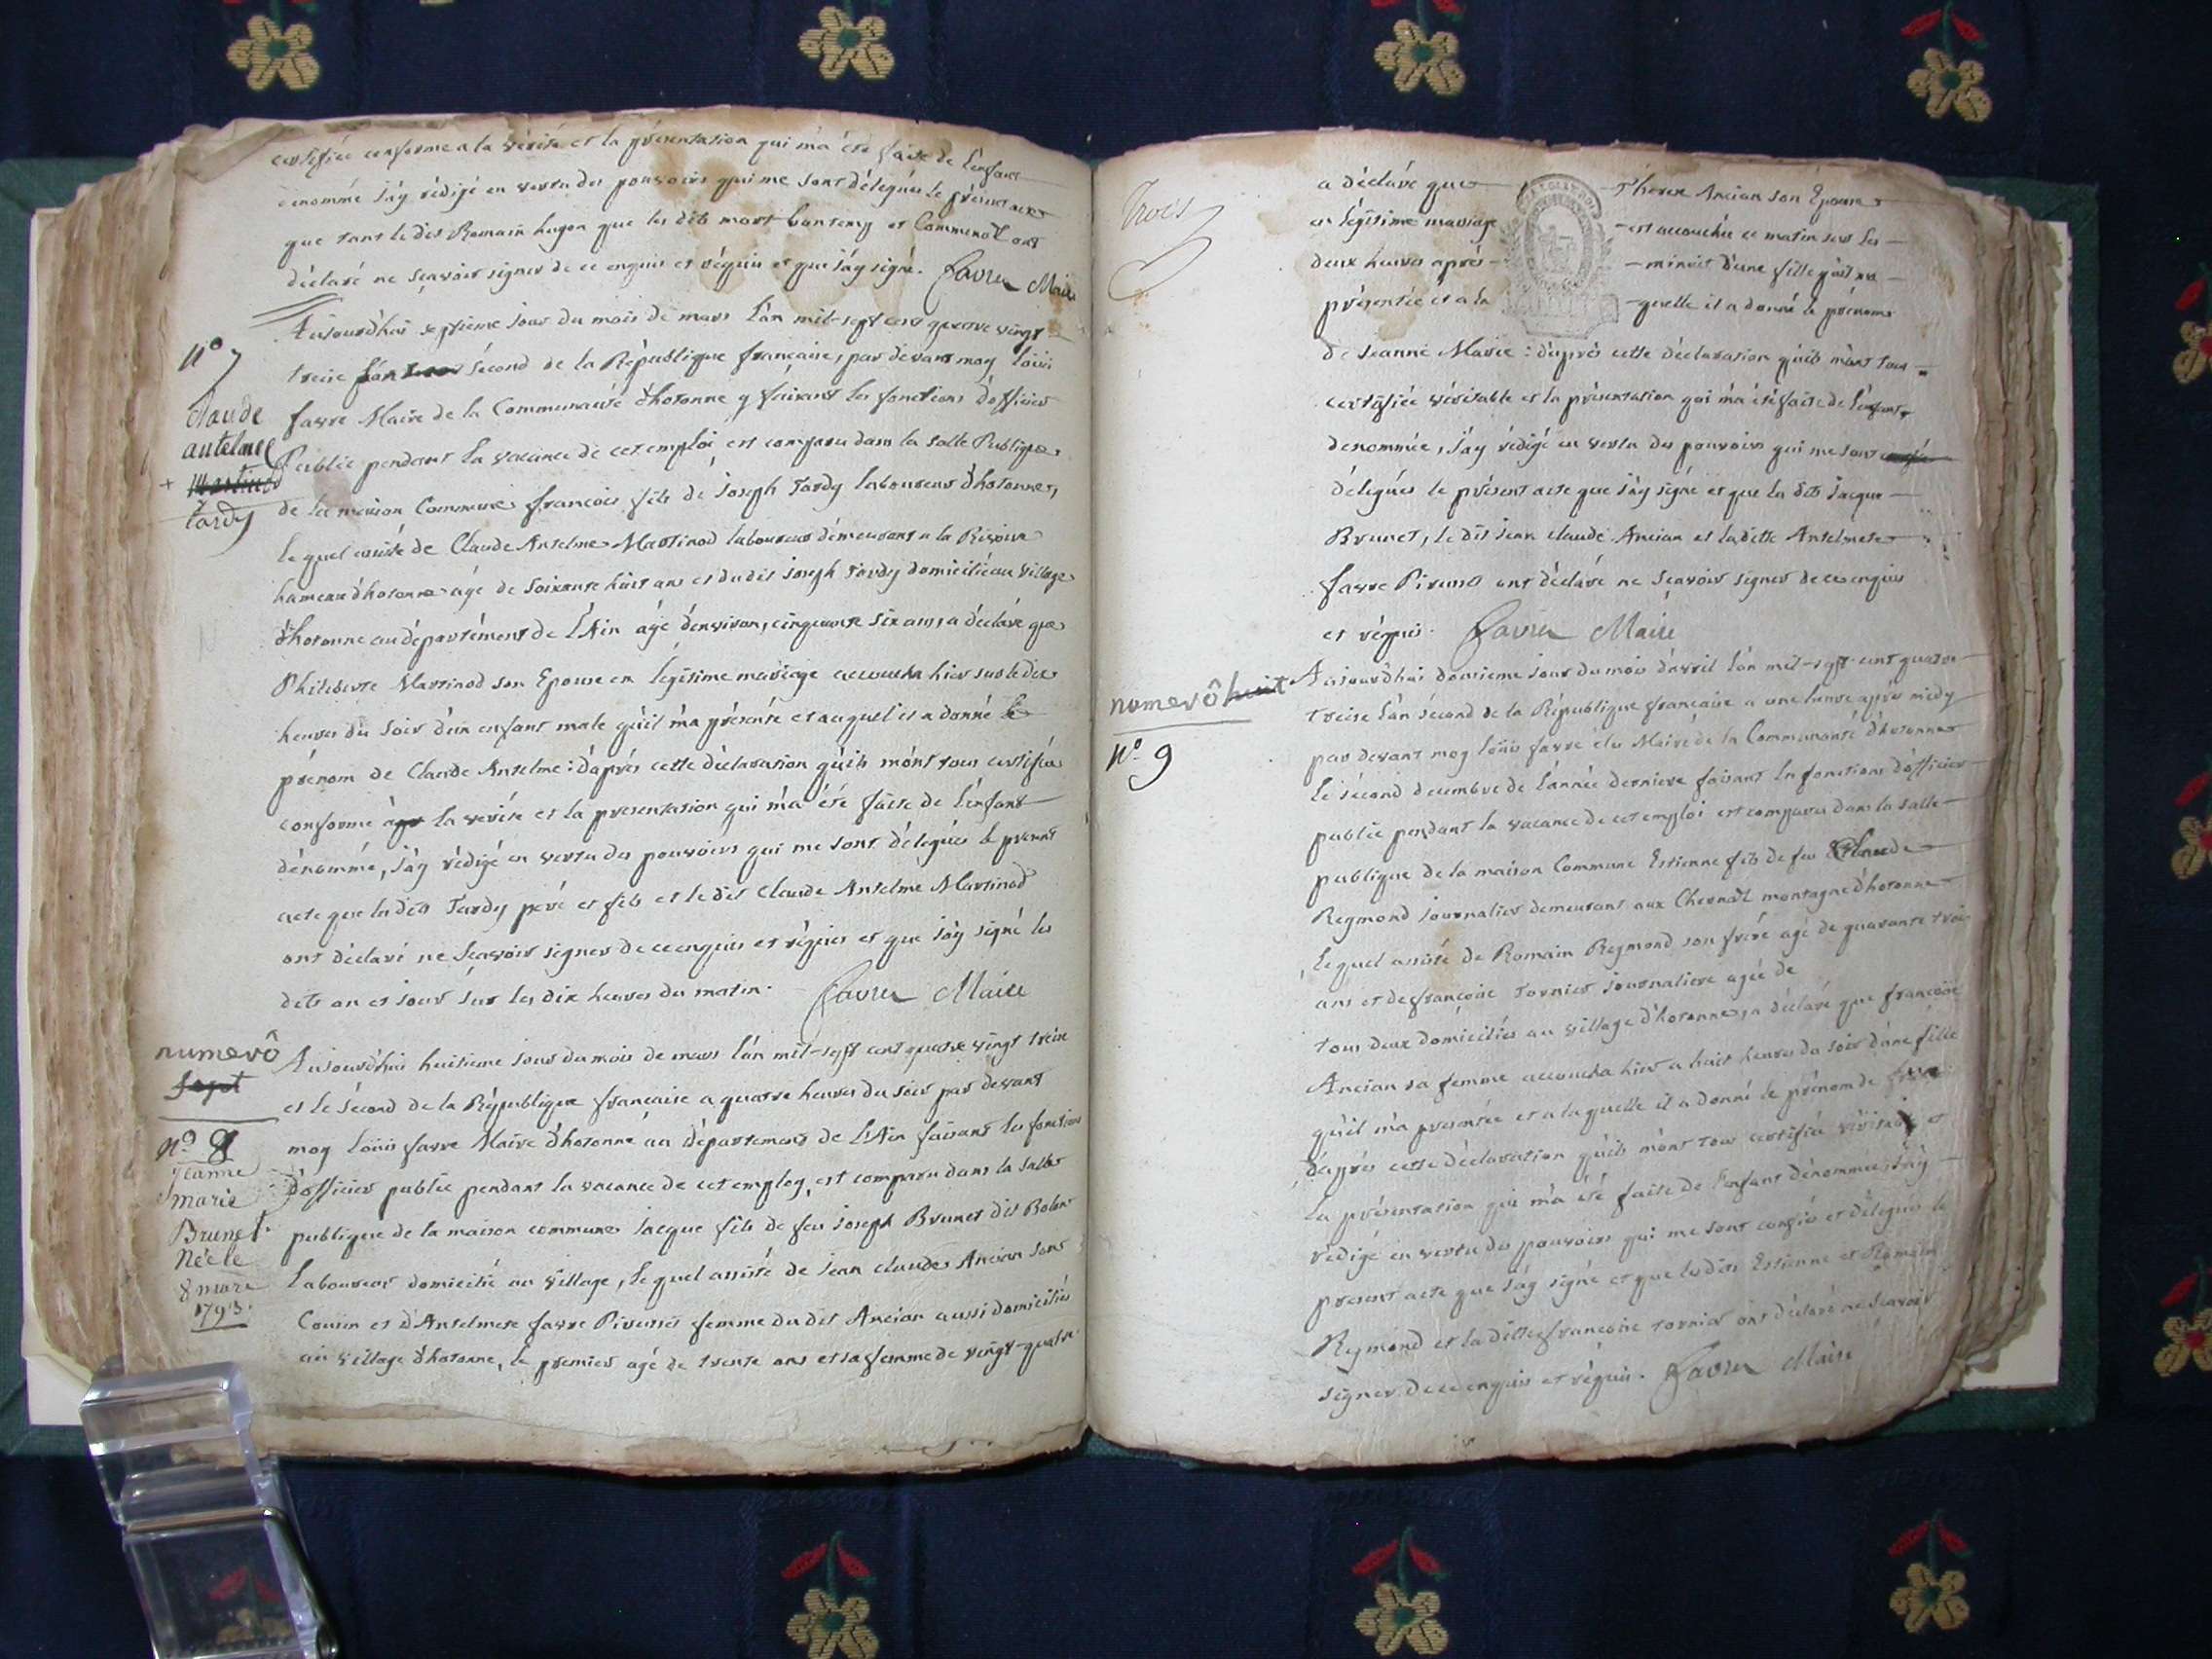 certifiée conforme a la verité et la présentation qui m'a été faite de l'enfant
denommé j'ay rédigé en vertu des pouvoirs qui me sont délegués le présent acte
que tant le dit Romain hugon que les dits mart et Commenal ont
déclaré ne sçavoir signer de ce enquis et réquis et que j'ay signé. favre Maire
n° 7
claude
antelme
tardy
Aujourd'hui septieme jour du mois de mars l'an mil-sept cent quatre vingt
treize second de la République francaise, par devant moy loüis
favre Maire de la Communauté d'hotonne y faisant les fonctions d'officier
Public pendant la vacance de cet emploi est comparu dans la salle Publique
de la maison Commune francois fils de joseph Tardy laboureur d'hotonne,
le quel assisté de Claude Antelme Martinod laboureur demeurant a la Rivoire
hameau d'hotonne agé de soixante huit ans et du dit joseph Tardy domicilié au village
d'hotonne au département de L'Ain agé d'environ cinquante six ans, a déclaré que
Philiberte Martinod son Epouse en légitime mariage accoucha hier sur le dix
heures du soir d'un enfant male qu'il m'a présenté et au quel il a donné le
prénom de Claude Antelme: d'après cette déclaration qu'ils m'ont tous certifiée
conforme a la verité et la presentation qui m'a été faite de l'enfant
dénommé, j'ay rédigé en vertu des pouvoirs qui me sont délegués le present
acte que les dits Tardy pere et fils et le dit Claude Antelme Martinod
ont déclaré ne sçavoir signer de ce enquis et réquis et que j'ay signé les
dits an et jour sur les dix heures du matin. favre Maire
numerô
sept
n° 8
Jeanne
marie
Brunet
Née le
8 mars
1793.
Aujourd'hui huitieme jour du mois de mars l'an mil-sept cent quatre vingt treize
et le sécond de la République francaise a quatre heures du soir par devant
moy loüis favre Maire d'hotonne au Département de L'Ain faisant les fonctions
d'officier public pendant la vacance de cet employ, est comparu dans la salle
publique de la maison commune jacque fils de feu joseph Brunet dit
Laboureur domicilié au village, le quel assisté de jean claude Ancian son
Cousin et d'Antelmete favre femme du dit Ancian aussi domiciliés
au village d'hotonne, le premier agé de trente ans et sa femme de vingt-quatre
Trois
a déclaré que Therese Ancian son Epouse
en légitime mariage est accouchée ce matin sur les
deux heures après minuit d'une fille qu'il m'a
présentée et a la quelle il a donné le prénom
de jeanne Marie: d'après cette déclaration qu'ils m'ont tous
certifiée véritable et la présentation qui m'a été faite de l'enfant
denommée, j'ay rédigé en vertu des pouvoirs qui me sont
délegués le présent acte que j'ay signé et que les dits jacque
Brunet, le dit jean claude Ancian et laditte Antelmete
favre ont déclaré ne sçavoir signer de ce enquis
et réquis. favre Maire
numerô huit
n° 9
Aujourd'hui douzieme jour du mois d'avril l'an mil-sept-cent quatre
treize l'an sécond de la République francaise a une heure après midy
par devant moy loüis favre élu Maire de la Communauté d'hotonne
le sécond decembre de l'année derniere faisant les fonctions d'officier
public pendant la vacance de cet emploi est comparu dans la salle
publique de la maison Commune Estienne fils de feu Claude
Reymond journalier demeurant aux Chernat montagne d'hotonne
le quel assisté de Romain Reymond son frere agé de quarante trois
ans et de francoise Tornier journaliere agée de
tous deux domiciliés au village d'hotonne, a déclaré que francoise
Ancian sa femme accoucha hier a huit heures du soir d'une fille
qu'il m'a presentée et a la quelle il a donné le prénom de
d'après cette déclaration qu'ils m'ont tous certifiée véritable et
la présentation qui m'a été faite de l'enfant dénommée, j'ay
rédigé en vertu des pouvoirs qui me sont confiés et délegués le
present acte que j'ay signé et que les dits Estienne et Romain
Reymond et la ditte francoise tornier ont déclaré ne sçavoir
signer de ce enquis et réquis. favre Maire